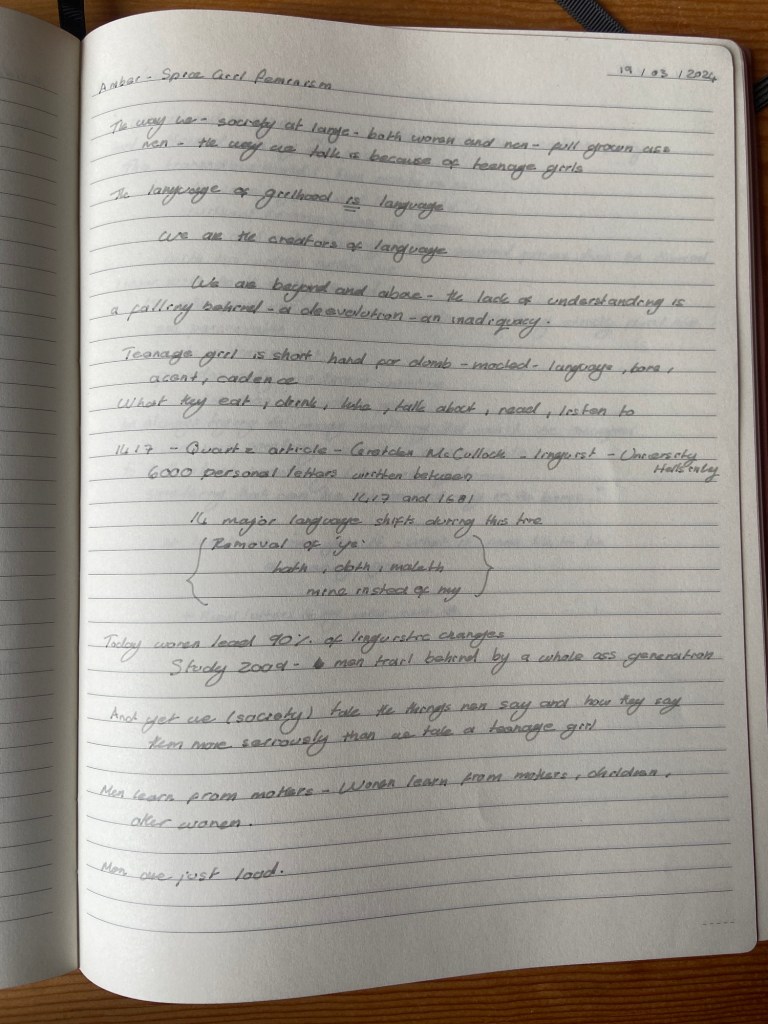 19 / 03 / 2024
Amber - Spice Girl Feminism
The way we - society at large - both women and men - full grown ass
men - the way we talk is because of teenage girls
The language of girlhood is language
We are the creators of language
We are beyond and above - the lack of understanding is
a falling behind - a deevolution - an inadiquacy.
Teenage girl is short hand for dumb - mocked - language, tone,
accent, cadence
What they eat, drink, like, talk about, read, listen to
1417 - Quartz article - Gretchen McCulloch - linguist - University
Helsinky
6000 personal letters written between
1417 and 1681
14 major language shifts during this time
Removal of 'ye'
hath, doth, maketh
mine instead of my
Today women lead 90% of linguistic changes
Study 2009 - men trail behind by a whole ass generation
And yet we (society) take the things men say and how they say
them more seriously than we take a teenage girl
Men learn from mothers - Women learn from mothers, children,
other women.
Men are just loud.